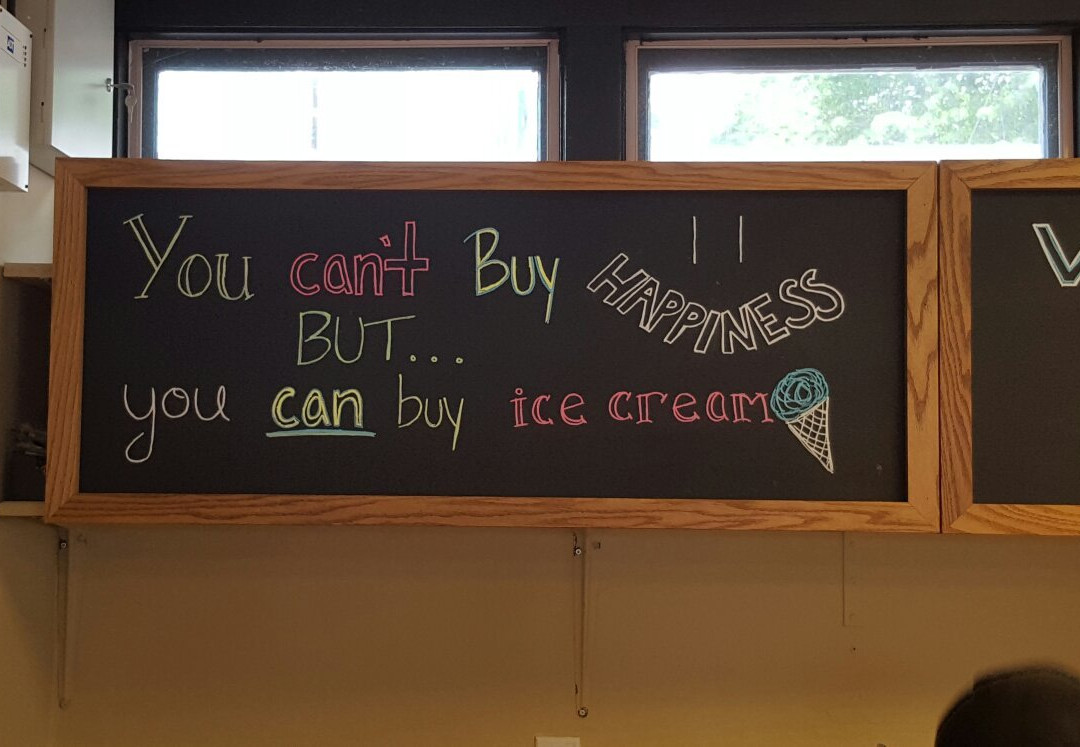 You can't Buy HAPPINESS
BUT...
you can buy ice cream